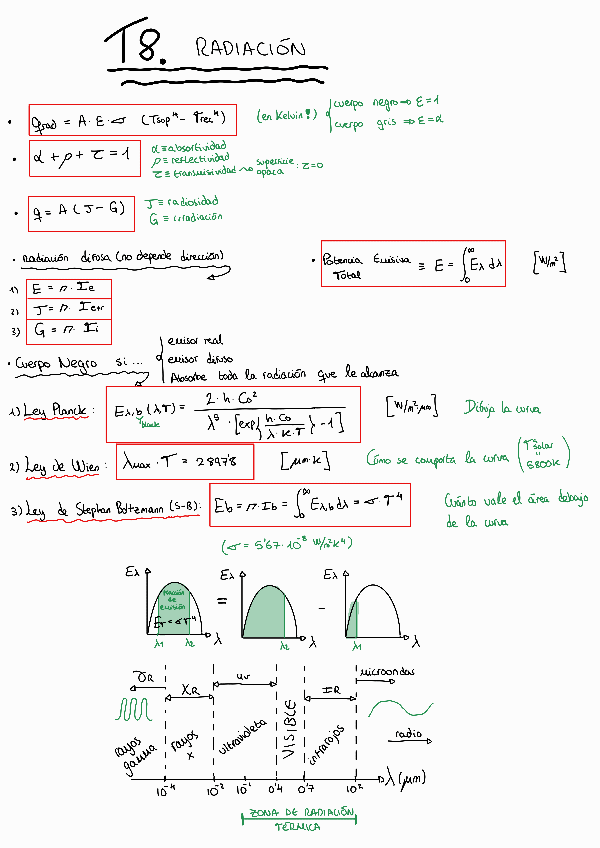 T8. RADIACIÓN
• qrad = A · ε · σ (Tsup⁴ - Trec⁴) (en Kelvin!) { cuerpo negro ⇒ ε = 1
cuerpo gris ⇒ ε = α
• α + ρ + τ = 1
α ≡ absortividad
ρ ≡ reflectividad
τ ≡ transmisividad ~> superficie opaca : τ = 0
• q = A (J - G)
J ≡ radiosidad
G ≡ irradiación
• Radiación difosa (no depende dirección)
1) E = π · Ie
2) J = π · Ie+r
3) G = π · Ii
• Potencia Emisiva Total ≡ E = ∫₀^∞ Eλ dλ [W/m²]
• Cuerpo Negro si ... { emisor real
emisor difuso
Absorbe toda la radiación que le alcanza
1) Ley Planck : Eλ,b (λ,T) = 2 · h · Co² / λ⁵ · [exp{h · Co / λ · K · T} - 1] [W/m² · μm] Dibuja la curva
black
2) Ley de Wien : λmax · T = 2897'8 [μm · K] Cómo se comporta la curva (Tsolar = 5800K)
3) Ley de Stephan Boltzmann (S-B) : Eb = π · Ib = ∫₀^∞ Eλ,b dλ = σ · T⁴ Cuánto vale el área debajo
de la curva
(σ = 5'67 · 10⁻⁸ W/m²K⁴)
Eλ Eλ Eλ
fracción de emisión
ET = σT⁴
= -
λ1 λ2 λ λ2 λ λ1 λ
γR XR uv VISIBLE IR microondas
radio
rayos gamma rayos x ultravioleta infrarojos
10⁻⁴ 10⁻² 10⁻¹ 0'4 0'7 10² λ (μm)
ZONA DE RADIACIÓN
TÉRMICA